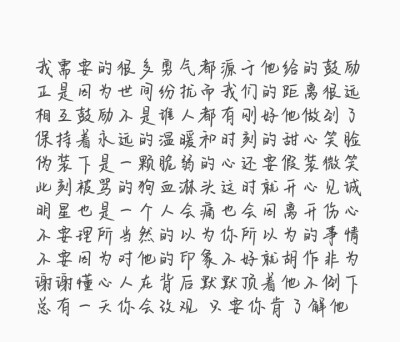 我需要的很多勇气都源于他给的鼓励
正是因为世间纷扰而我们的距离很远
相互鼓励不是谁人都有刚好他做到了
保持着永远的温暖和时刻的甜心笑脸
伪装下是一颗脆弱的心还要假装微笑
此刻被骂的狗血淋头这时就开心见诚
明星也是一个人会痛也会因离开伤心
不要理所当然的以为你所以为的事情
不要因为对他的印象不好就胡作非为
谢谢懂心人在背后默默顶着他不倒下
总有一天你会改观 只要你肯了解他